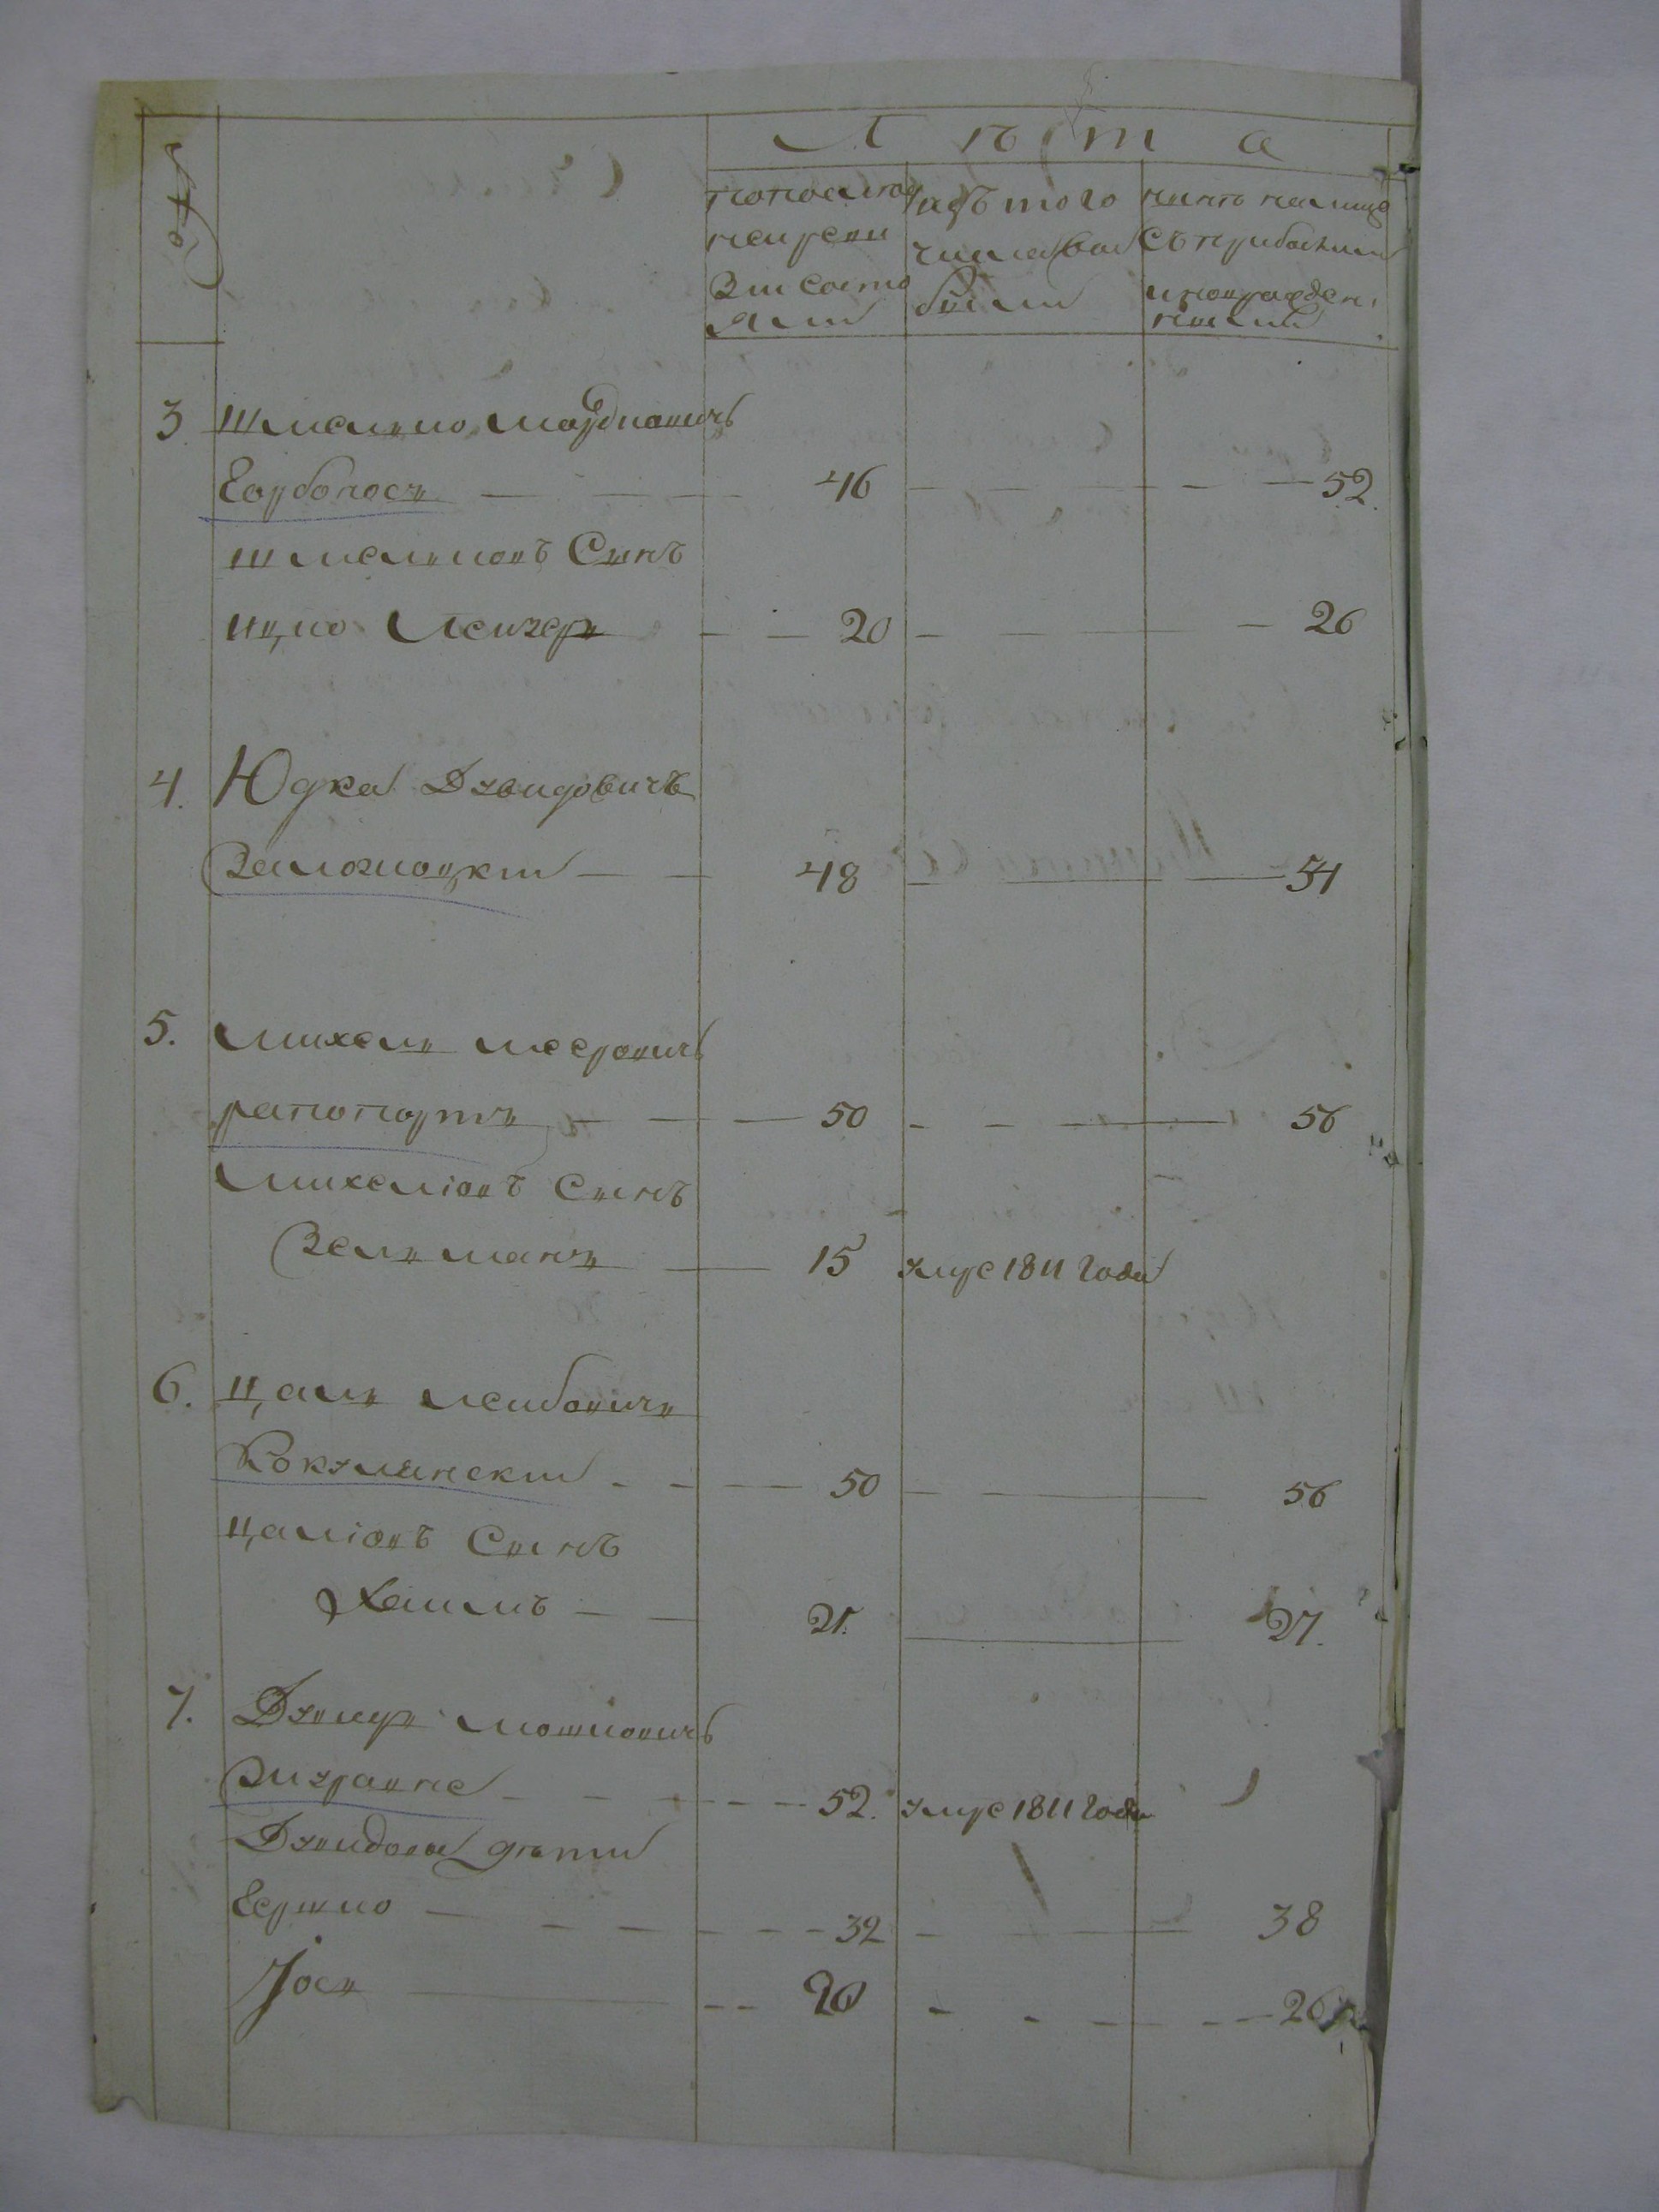 Лѣта
попослѣд
ней реви
зіи состо
яли
изъ того
числа вы
были
нынѣ налицо
съ прибылыми
и новорожден
ными
3 Шмелько Мордковичъ
Гарбопосъ 46 52.
Шмельковъ Сынъ
Ицко Лейзеръ 20 26
4. Юдка Дувидовичъ
Заложоцкій 48 54
5. Михель Мееровичъ
рапопортъ 50 56
Михеліовъ Сынъ
Зельманъ 15 умре 1811 Года
6. Цаль Лейбовичъ
50 56
Цаліовъ Сынъ
Хаимъ 21. 27.
7. Дувидъ Мошковичъ
52. умре 1811 Года
Дувидова дѣти
Гершко 32 38
Іось 20 26